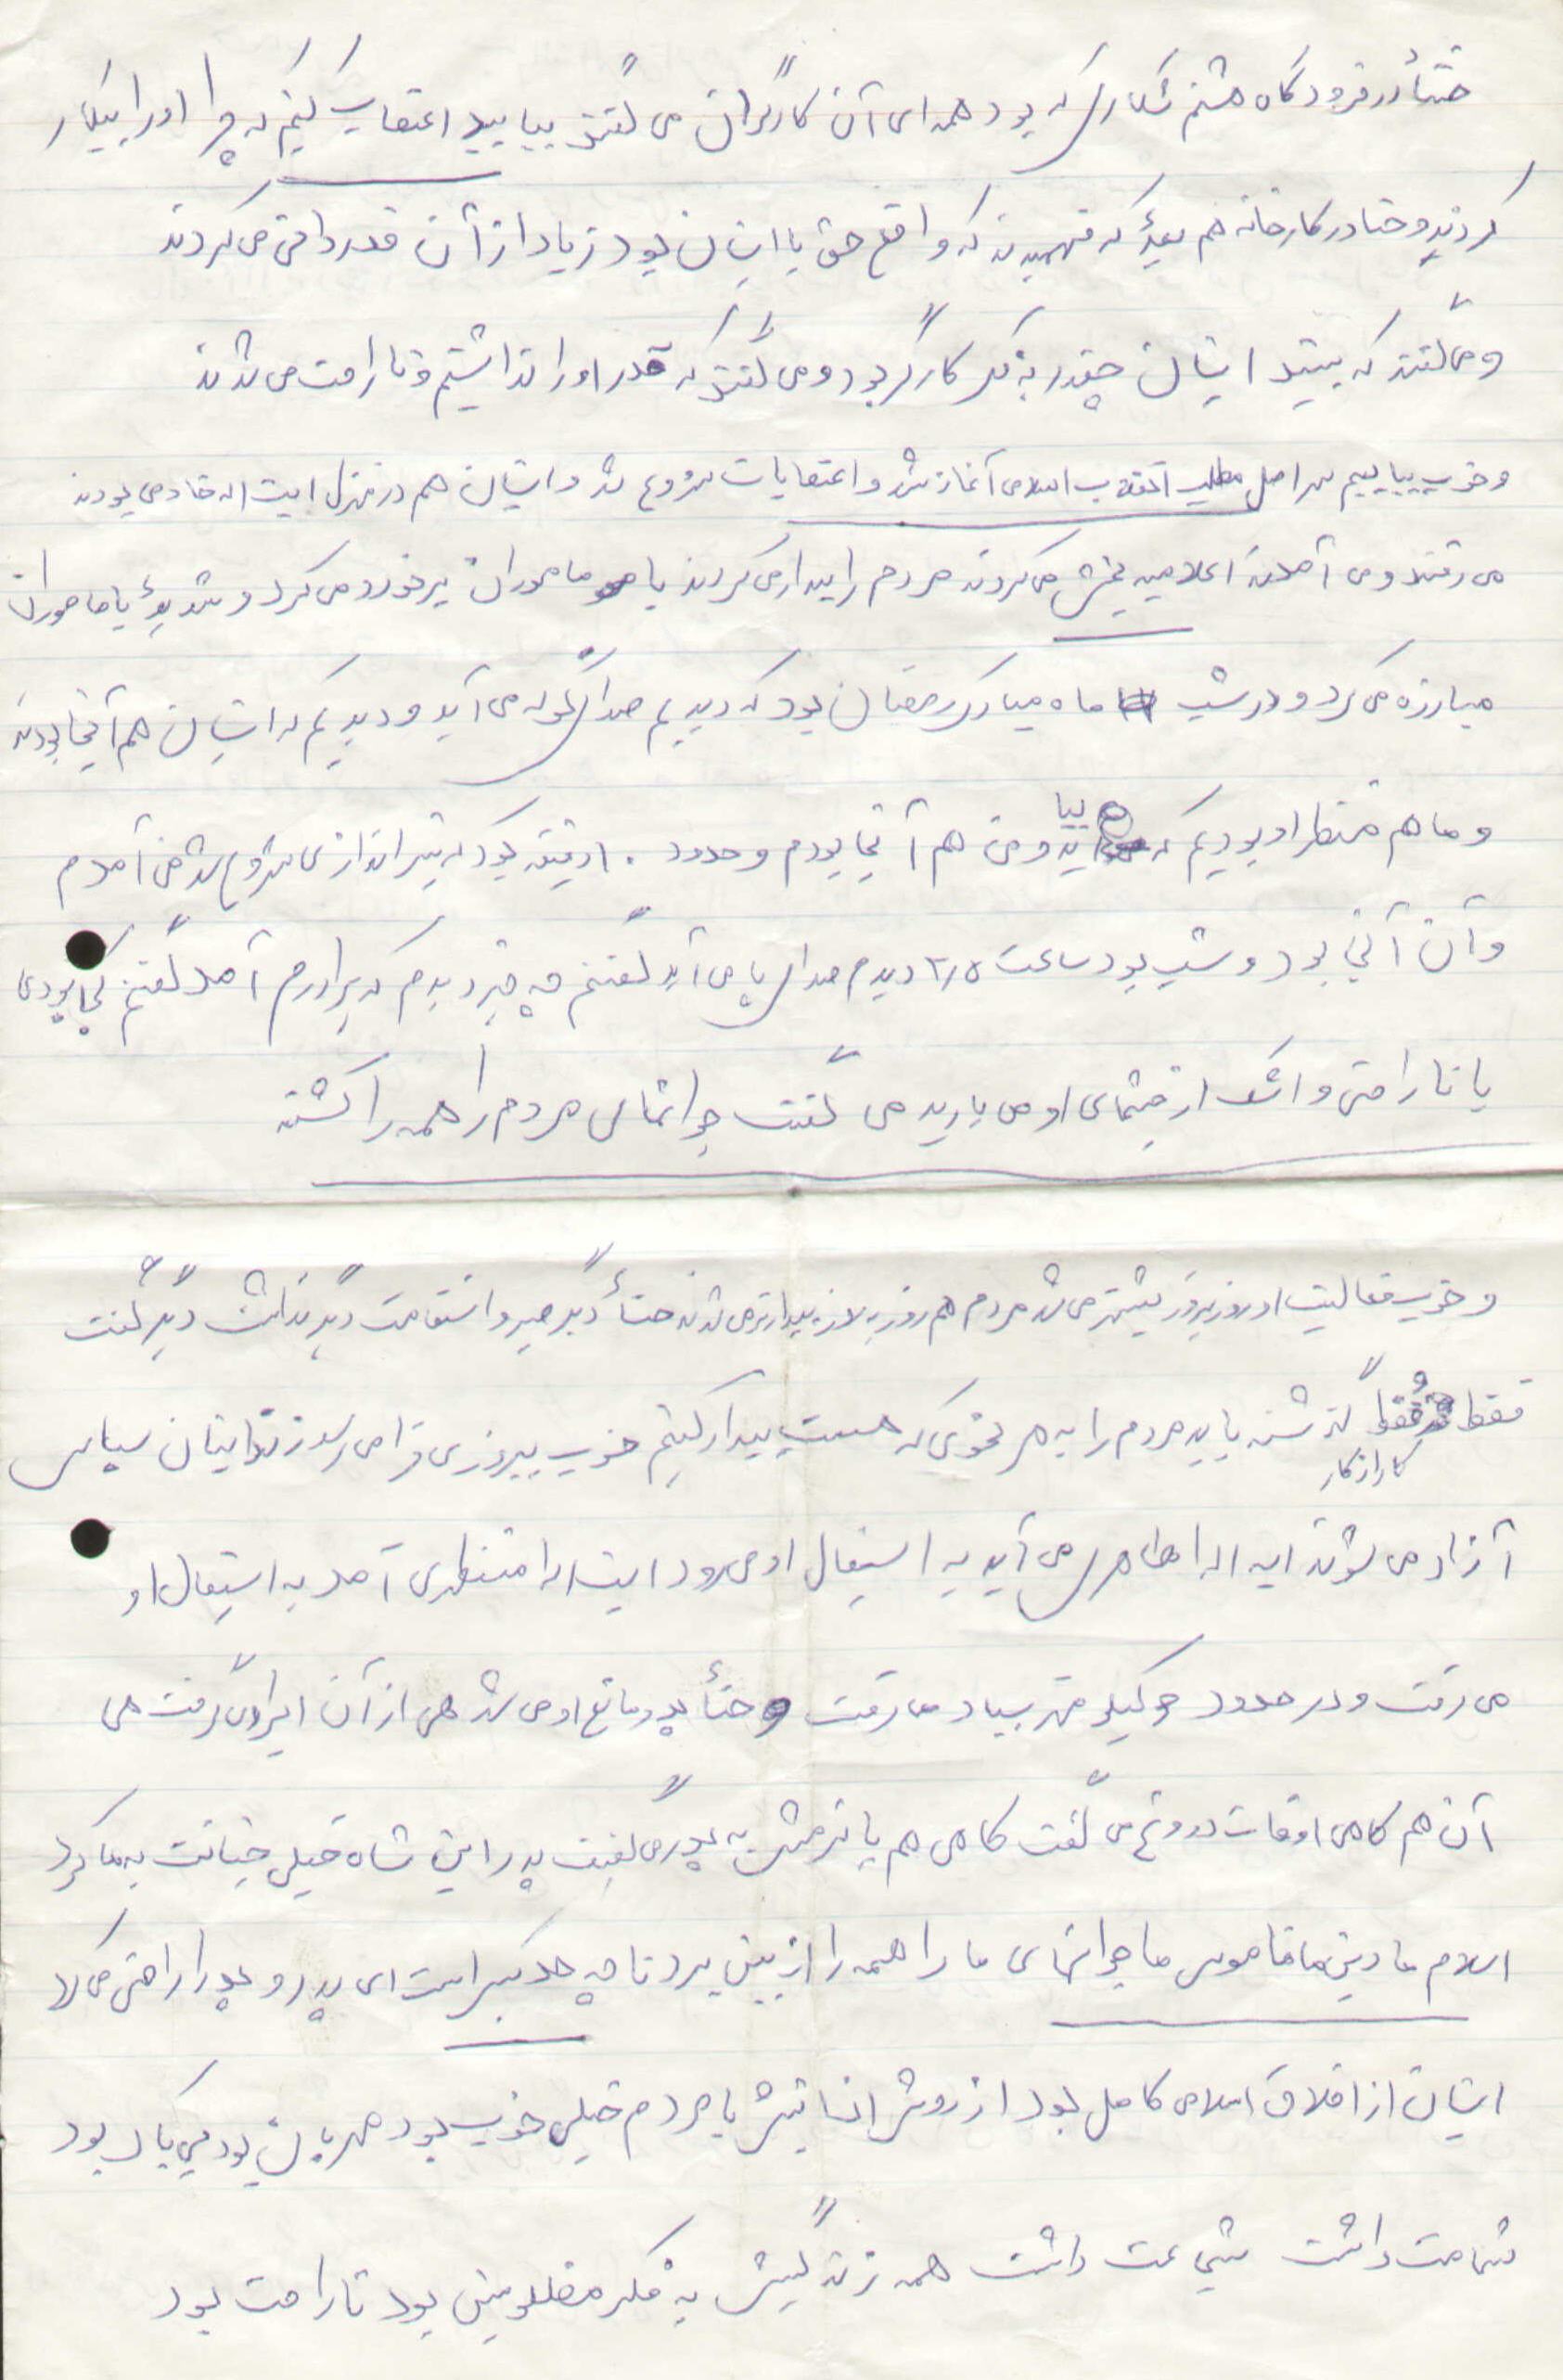 حتأ در فرودگاه هشتم شکاری که بود همه ای آن کارگران می گفتند بیایید اعتصاب کنیم که چرا او را بیکار
کردند و حتا در کارخانه هم بعدً که فهمیدند که واقع حق با ایشان بود زیاد از آن قدردانی می کردند
و می گفتند که ببینید ایشان چقدر به فکر کارگر بود و می گفتند که قدر او را نداشتیم و ناراحت می شدند
و خوب بیاییم سر اصل مطلب انقلاب اسلامی آغاز شد و اعتصابات شروع شد و ایشان هم در منزل ایت اله خادمی بودند
می رفتند و می آمدند اعلامیه پخش می کردند مردم را بیدار می کردند با ماموران برخورد می کرد و شدیدً با ماموران
مبارزه می کرد و در شب ماه مبارک رمضان بود که دیدیم صدا گلوله می آید و دیدیم که ایشان هم آنجا بودند
و ما هم منتظر او بودیم که بیاید و من هم آنجا بودم و حدود ۱۰ دقیقه بود که تیراندازی شروع شد من آمدم
و آن آنجا بود و شب بود ساعت ۲/۵ دیدم صدای پا می آید گفتم چه خبر دیدم که برادرم آمد گفتم کجا بودی
با ناراحتی و اشک از چشمای او می بارید می گفت جوانهای مردم را همه را کشتند
و خوب فعالیت او روز بروز بیشتر می شد مردم هم روز به روز بیدارتر می شدند حتأ دیگر صبر و استقامت دیگر نداشت دیگر گفت
فقط فقط گذشته باید مردم را به هر نحوی که هست بیدار کنیم خوب پیروزی فرا می رسد زندانیان سیاسی
کار از کار
آزاد می شوند ایه اله طاهری می آید به استقبال او می رود ایت اله منتظری آمد به استقبال او
می رفت و در حدود کیلومتر پیاده می رفت و حتأ پدر مانع او می شد هی از آن ایراد می گرفت هی
آن هم گاهی اوقات دروغ می گفت گاهی هم با نرمش به پدر می گفت پدر این شاه خیلی خیانت به ما کرد
اسلام ما دین ما ناموس ما جوانهای ما را همه را از بین برد تا چه حد کبر است ای پدر و پدر را راضی می کرد
ایشان از اخلاق اسلامی کامل بود از روش انسانیش با مردم خیلی خوب بود مهربان بود بی باک بود
شهامت داشت شجاعت داشت همه زندگیش به فکر مظلومین بود ناراحت بود